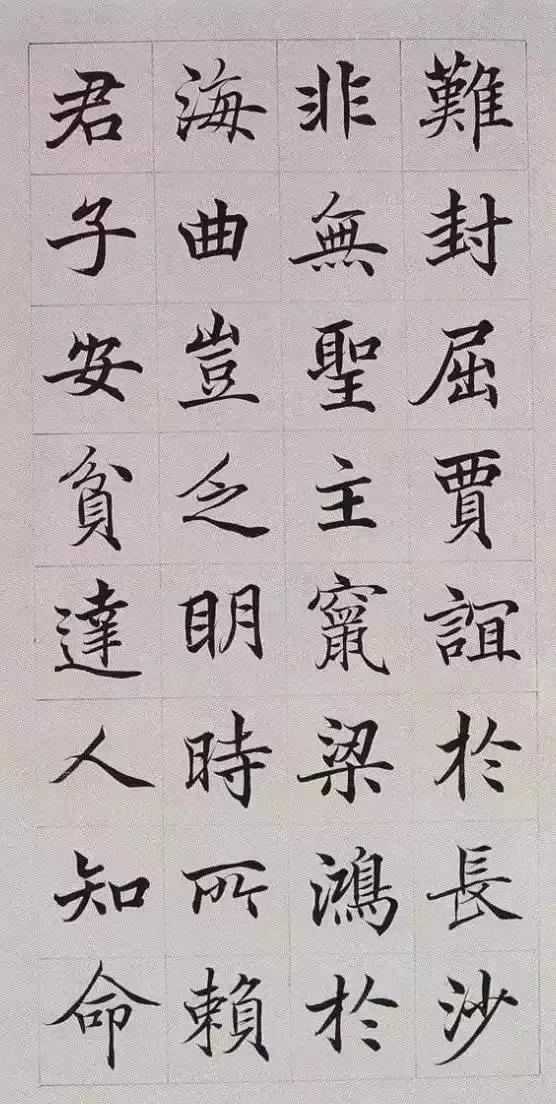 難封屈賈誼於長沙
非無聖主竄梁鴻於
海曲豈乏明時所賴
君子安貧達人知命